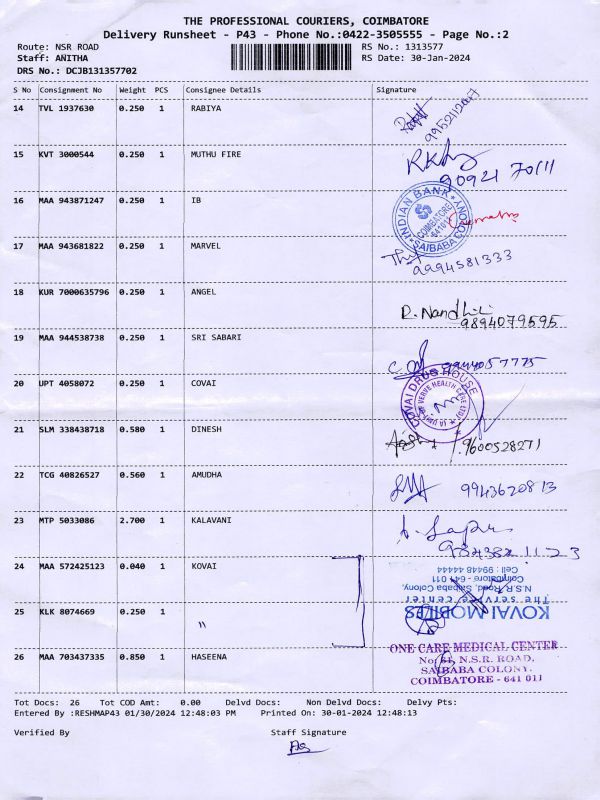 THE PROFESSIONAL COURIERS, COIMBATORE
Delivery Runsheet - P43 - Phone No.:0422-3505555 - Page No.:2
Route: NSR ROAD RS No.: 1313577
Staff: ANITHA RS Date: 30-Jan-2024
DRS No.: DCJB131357702
S No Consignment No Weight PCS Consignee Details Signature
14 TVL 1937630 0.250 1 RABIYA
9952112007
15 KVT 3000544 0.250 1 MUTHU FIRE
90921 70111
16 MAA 943871247 0.250 1 IB
INDIAN BANK
COIMBATORE
641011
SAIBABA COLONY
17 MAA 943681822 0.250 1 MARVEL
9994581333
18 KUR 7000635796 0.250 1 ANGEL
R. Nandhini
9894079595
19 MAA 944538738 0.250 1 SRI SABARI
9944057775
20 UPT 4058072 0.250 1 COVAI
COVAI DRUG HOUSE
21 SLM 338438718 0.580 1 DINESH
9600528271
22 TCG 40826527 0.560 1 AMUDHA
9943620813
23 MTP 5033086 2.700 1 KALAVANI
984382 11 23
24 MAA 572425123 0.040 1 KOVAI
KOVAI MOBILES
The service Center
N.S.R. Road, Saibaba Colony,
Coimbatore - 641 011
Cell : 99448 44444
25 KLK 8074669 0.250 1 〃
26 MAA 703437335 0.850 1 HASEENA
ONE CARE MEDICAL CENTER
N.S.R. ROAD,
SAIBABA COLONY,
COIMBATORE - 641 011
Tot Docs: 26 Tot COD Amt: 0.00 Delvd Docs: Non Delvd Docs: Delvy Pts:
Entered By :RESHMAP43 01/30/2024 12:48:03 PM Printed On: 30-01-2024 12:48:13
Verified By Staff Signature